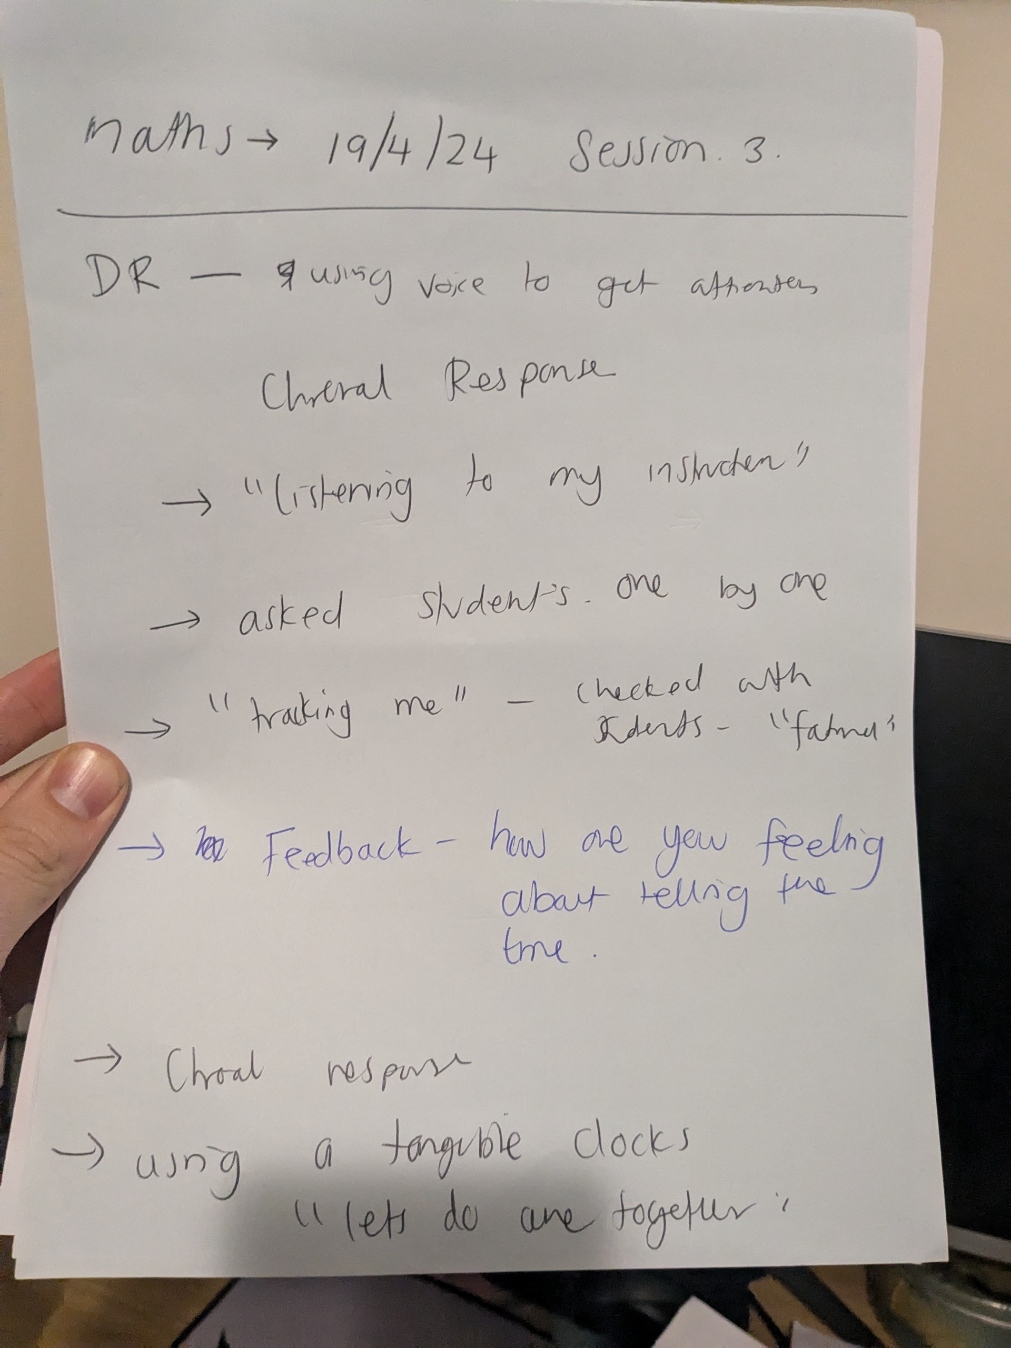 Maths → 19/4/24 Session. 3.
DR — using voice to get attention
Choral Response
→ "listening to my instruction"
→ asked student's. one by one
→ "tracking me" – checked with
students – "fatma"
→ Feedback – how are you feeling
about telling the
time.
→ Choral response
→ using a tangible clocks
"lets do one together"